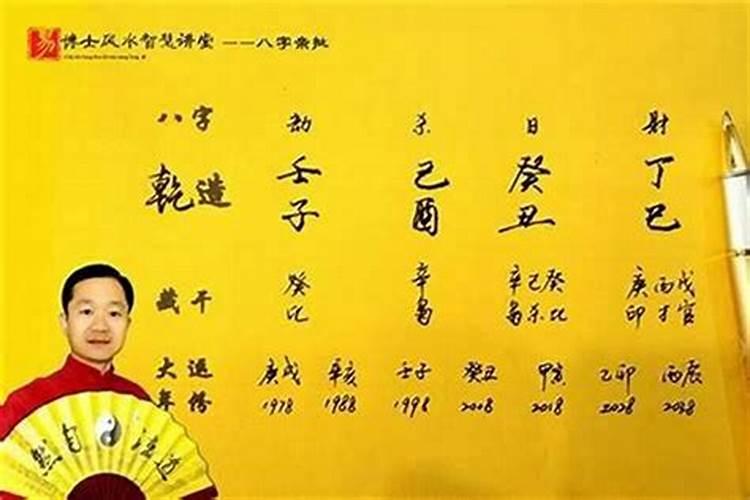 易 博士风水智慧讲堂 ——八字亲批
八字 劫 杀 日 財
乾造 壬 己 癸 丁
子 酉 丑 巳
藏干 癸 辛 辛己癸 庚丙戊
比 枭 枭杀比 印才官
大运 庚戌 辛亥 壬子 癸丑 甲寅 乙卯 丙辰
年份 1978 1988 1998 2008 2018 2028 2038
道法自然